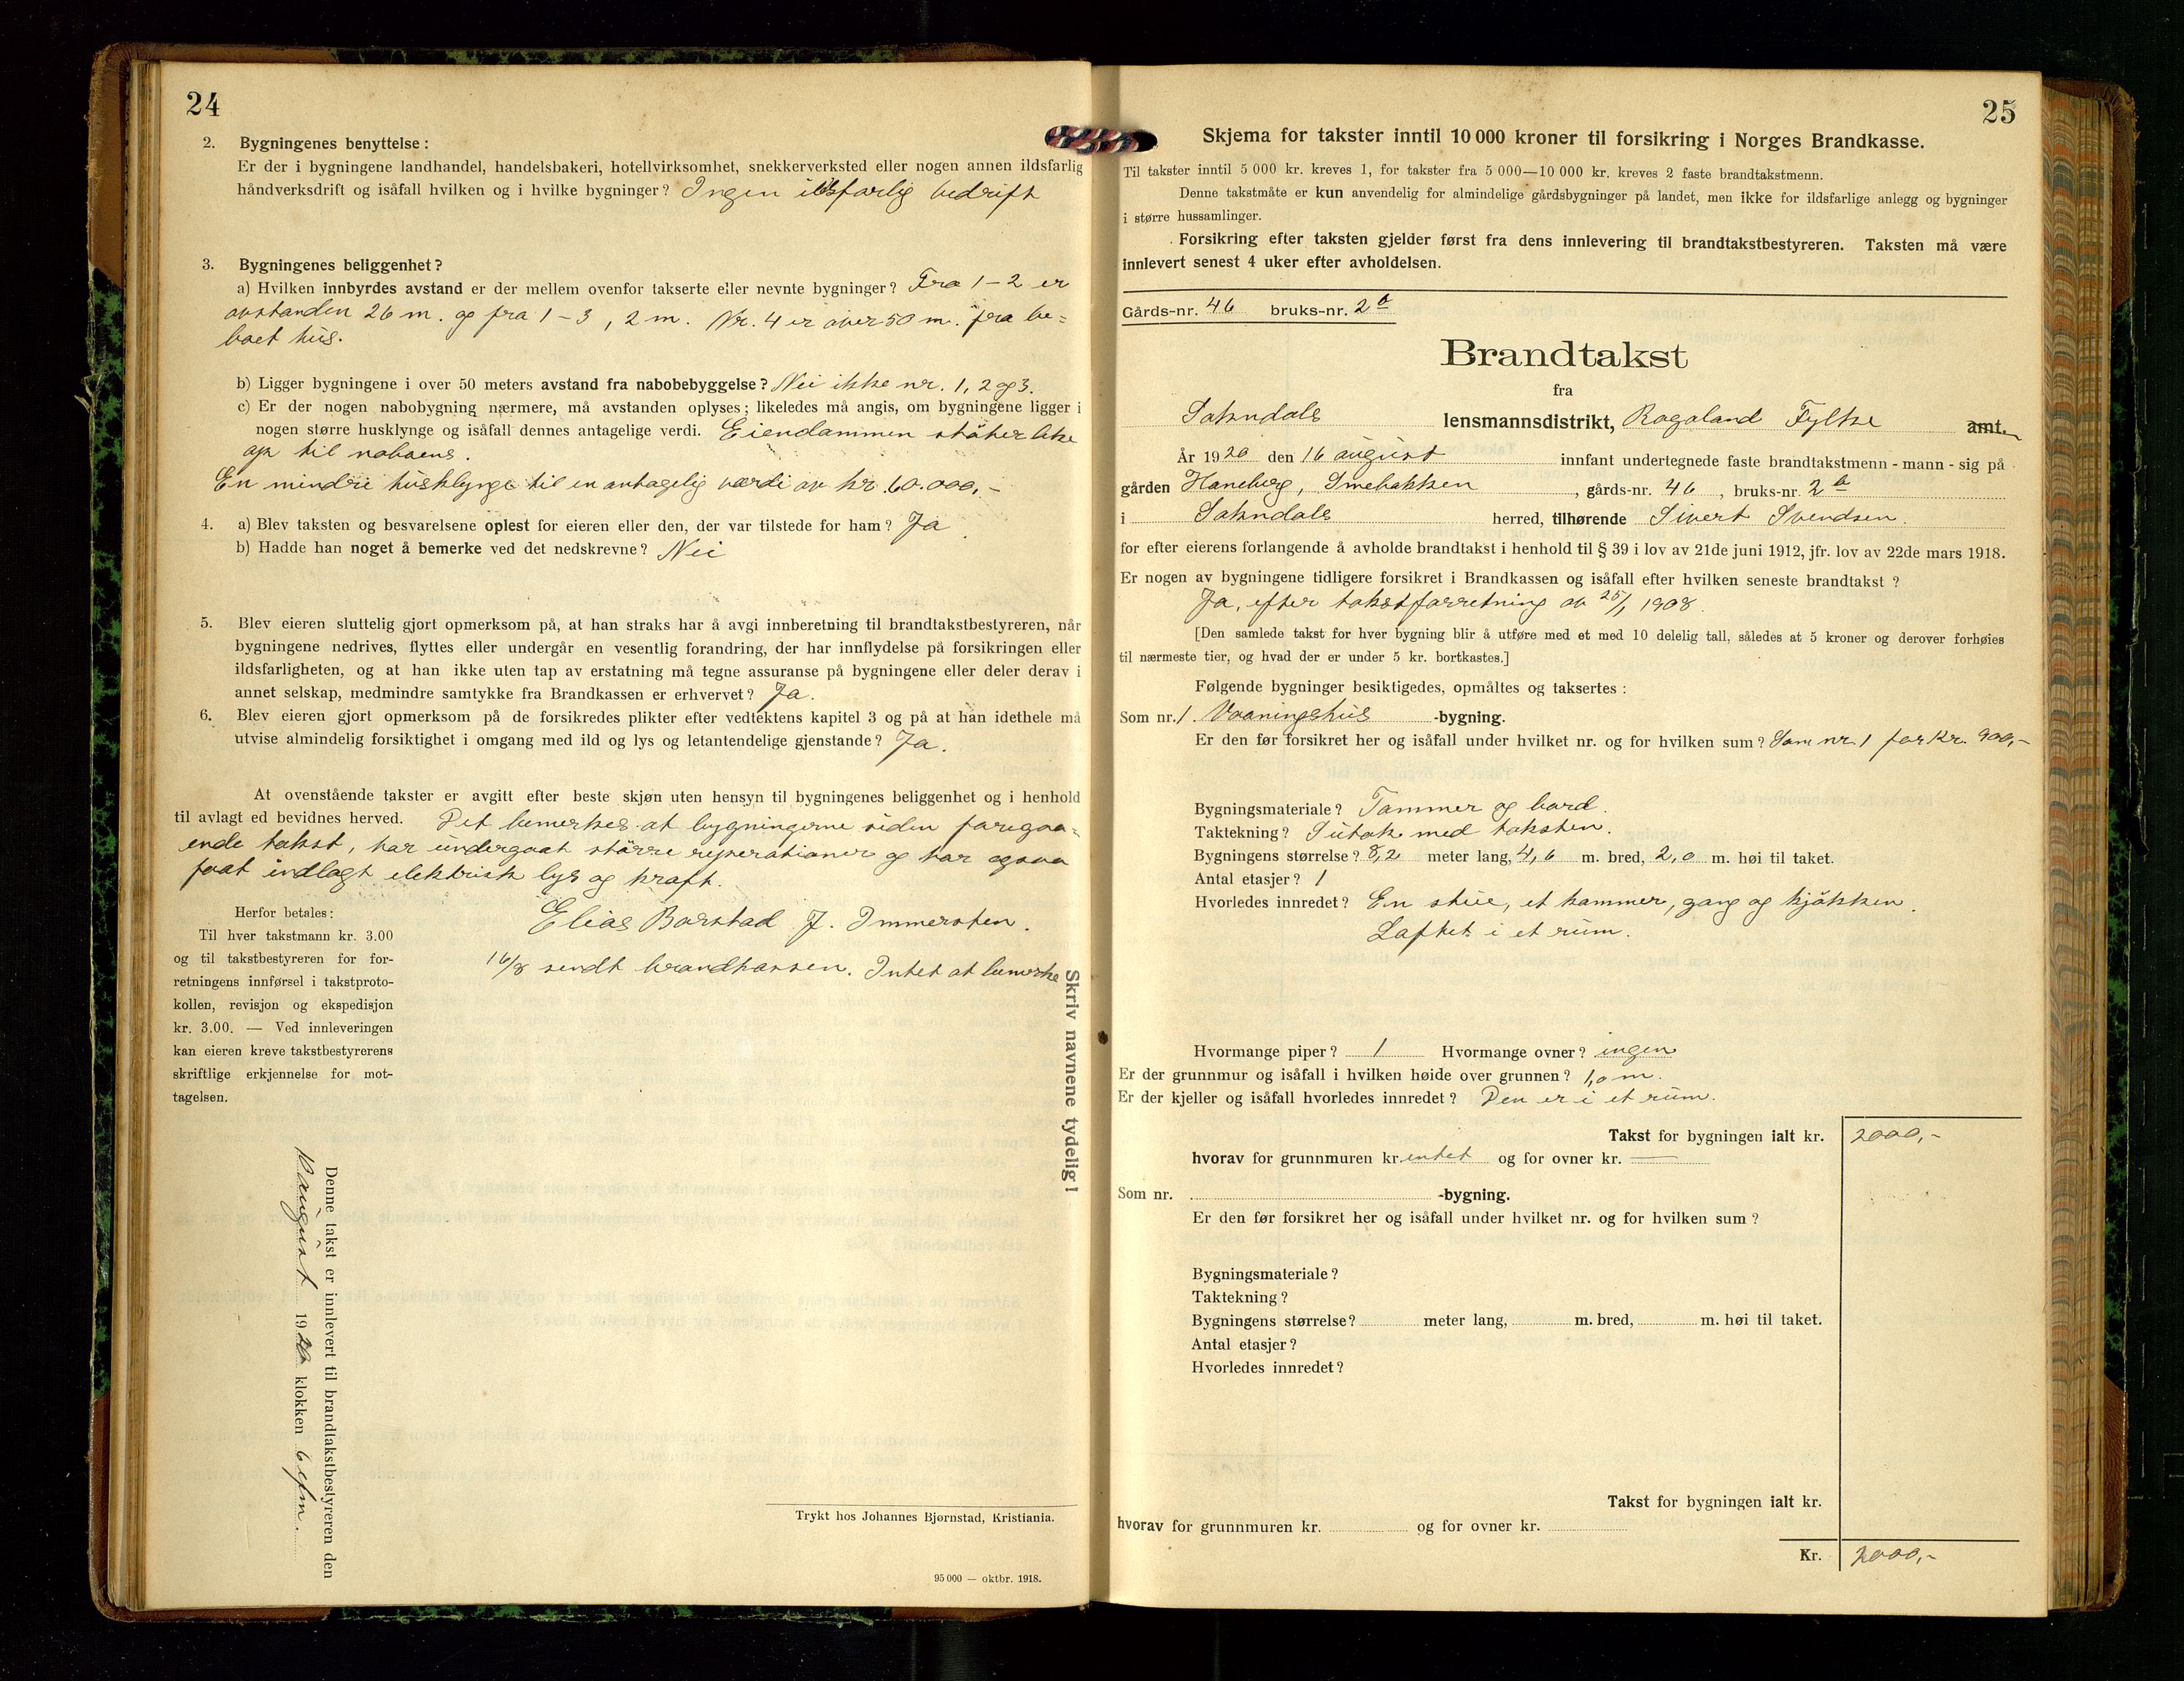 24
2. Bygningenes benyttelse:
Er der i bygningene landhandel, handelsbakeri, hotellvirksomhet, snekkerverksted eller nogen annen ildsfarlig
håndverksdrift og isåfall hvilken og i hvilke bygninger? Ingen ildsfarlig bedrift
3. Bygningenes beliggenhet?
a) Hvilken innbyrdes avstand er der mellem ovenfor takserte eller nevnte bygninger? Fra 1-2 er
avstanden 26 m. og fra 1-3, 2 m. Nr. 4 er over 50 m. fra be=
boet hus.
b) Ligger bygningene i over 50 meters avstand fra nabobebyggelse? Nei ikke nr. 1, 2 og 3.
c) Er der nogen nabobygning nærmere, må avstanden oplyses; likeledes må angis, om bygningene ligger i
nogen større husklynge og isåfall dennes antagelige verdi. Eiendammen støter like
op til naboens.
En mindre husklynge til en antagelig værdi av kr. 60.000,-
4. a) Blev taksten og besvarelsene oplest for eieren eller den, der var tilstede for ham? Ja
b) Hadde han noget å bemerke ved det nedskrevne? Nei
5. Blev eieren sluttelig gjort opmerksom på, at han straks har å avgi innberetning til brandtakstbestyreren, når
bygningene nedrives, flyttes eller undergår en vesentlig forandring, der har innflydelse på forsikringen eller
ildsfarligheten, og at han ikke uten tap av erstatning må tegne assuranse på bygningene eller deler derav i
annet selskap, medmindre samtykke fra Brandkassen er erhvervet? Ja.
6. Blev eieren gjort opmerksom på de forsikredes plikter efter vedtektens kapitel 3 og på at han idethele må
utvise almindelig forsiktighet i omgang med ild og lys og letantendelige gjenstande? Ja.
At ovenstående takster er avgitt efter beste skjøn uten hensyn til bygningenes beliggenhet og i henhold
til avlagt ed bevidnes herved. Det bemerkes at bygningerne siden foregaa=
ende takst, har undergaat større reperationer og har ogsaa
faat indlagt elektrisk lys og kraft.
Elias Barstad J. Immerstein.
16/8 sendt brandkassen. Intet at bemerke
Herfor betales:
Til hver takstmann kr. 3.00
og til takstbestyreren for for-
retningens innførsel i takstproto-
kollen, revisjon og ekspedisjon
kr. 3.00. — Ved innleveringen
kan eieren kreve takstbestyrerens
skriftlige erkjennelse for mot-
tagelsen.
Skriv navnene tydelig!
Denne takst er innlevert til brandtakstbestyreren den
august 1920 klokken 6 efm.
Trykt hos Johannes Bjørnstad, Kristiania.
95 000 — oktbr. 1918.
25
Skjema for takster inntil 10 000 kroner til forsikring i Norges Brandkasse.
Til takster inntil 5 000 kr. kreves 1, for takster fra 5 000—10 000 kr. kreves 2 faste brandtakstmenn.
Denne takstmåte er kun anvendelig for almindelige gårdsbygninger på landet, men ikke for ildsfarlige anlegg og bygninger
i større hussamlinger.
Forsikring efter taksten gjelder først fra dens innlevering til brandtakstbestyreren. Taksten må være
innlevert senest 4 uker efter avholdelsen.
Gårds-nr. 46 bruks-nr. 2b
Brandtakst
fra
Sokndals lensmannsdistrikt, Rogaland Fylke amt.
År 1920 den 16 august innfant undertegnede faste brandtakstmenn - mann - sig på
gården Haneberg, Smebakken, gårds-nr. 46, bruks-nr. 2b
i Sokndals herred, tilhørende Sivert Svendsen.
for efter eierens forlangende å avholde brandtakst i henhold til § 39 i lov av 21de juni 1912, jfr. lov av 22de mars 1918.
Er nogen av bygningene tidligere forsikret i Brandkassen og isåfall efter hvilken seneste brandtakst?
Ja, efter takstforretning av 25/1 1908.
[Den samlede takst for hver bygning blir å utføre med et med 10 delelig tall, således at 5 kroner og derover forhøies
til nærmeste tier, og hvad der er under 5 kr. bortkastes.]
Følgende bygninger besiktigedes, opmåltes og taksertes:
Som nr. 1. Vaaningshus -bygning.
Er den før forsikret her og isåfall under hvilket nr. og for hvilken sum? Som nr. 1 for kr. 900,-
Bygningsmateriale? Tømmer og bord.
Taktekning? Sutak med taksten.
Bygningens størrelse? 8,2 meter lang, 4,6 m. bred, 2,0 m. høi til taket.
Antal etasjer? 1
Hvorledes innredet? En stue, et kammer, gang og kjøkken.
Loftet i et rum.
Hvormange piper? 1 Hvormange ovner? ingen
Er der grunnmur og isåfall i hvilken høide over grunnen? 1,0 m.
Er der kjeller og isåfall hvorledes innredet? Den er i et rum.
Takst for bygningen ialt kr. 2000,-
hvorav for grunnmuren kr. intet og for ovner kr. —
Som nr. -bygning.
Er den før forsikret her og isåfall under hvilket nr. og for hvilken sum?
Bygningsmateriale?
Taktekning?
Bygningens størrelse? meter lang, m. bred, m. høi til taket.
Antal etasjer?
Hvorledes innredet?
Takst for bygningen ialt kr.
hvorav for grunnmuren kr. og for ovner kr.
Kr. 2000,-